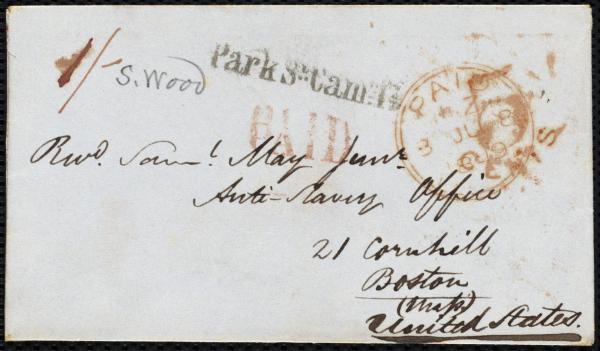 1/-
S. Wood
Park St. Cam. T
PAID
PAID
JU 8
Revd. Saml. May Junr.
Anti-Slavery Office
21 Cornhill
Boston
(Mass)
United States.